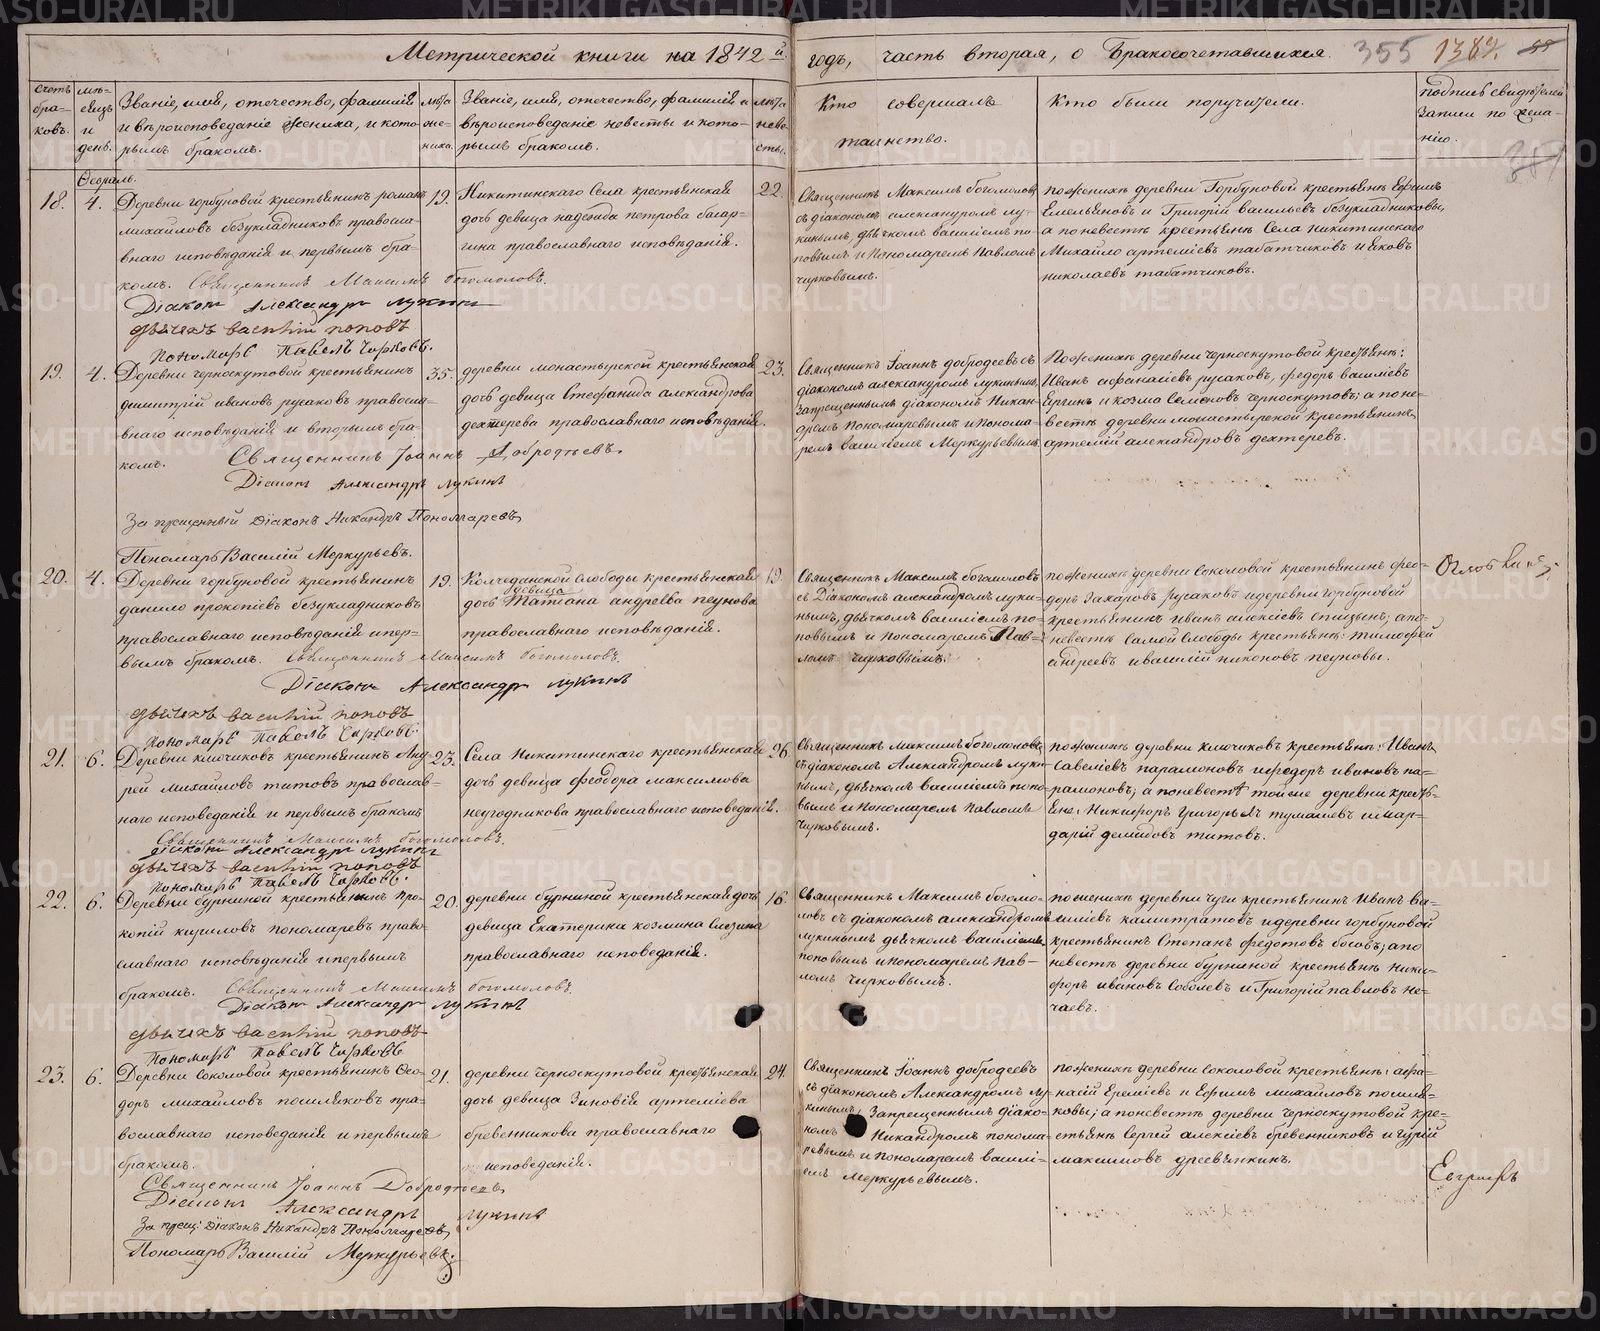 Метрической книги на 1842й годъ, часть вторая, о Бракосочетавшихся. 355 1382
Счетъ браковъ.
мѣсяцъ и день.
Званіе, имя, отечество, фамилія и вѣроисповеданіе жениха, и которымъ бракомъ.
лѣта жениха.
Званіе, имя, отечество, фамилія и вѣроисповеданіе невесты и которымъ бракомъ.
лѣта невесты.
Кто совершалъ таинство.
Кто были поручители.
подпись свидѣтелей записи по желанію.
Февраль.
18. 4.
Деревни горбуновой крестьянинъ романъ
михайловъ безукладниковъ православ-
внаго исповѣданія и первымъ бра-
комъ. Священникъ Максимъ Богомоловъ.
Діаконъ Александръ Лукинъ
дьячекъ василій поповъ
пономарь Павелъ Чирковъ.
19.
Никитинскаго Села крестьянская
дочь девица надежда петрова багар-
гина православнаго исповѣданія.
22.
Священникъ Максимъ богомоловъ,
съ діакономъ александромъ лу-
кинымъ, дьячкомъ василіемъ по-
повымъ и пономаремъ Павломъ
чирковымъ.
пожениху деревни Горбуновой крестьяне Ефимъ
Емельяновъ и Григорій васильевъ безукладниковы,
а по невестѣ крестьяне Села никитинскаго
Михайло артеміевъ табатчиковъ и яковъ
николаевъ табатчиковъ.
19. 4.
Деревни черноскутовой крестьянинъ
димитрій ивановъ русаковъ правосла-
внаго исповѣданія и вторымъ бра-
комъ. Священникъ Іоаннъ Добродѣевъ.
Діаконъ Александръ Лукинъ
Запрещенный Діаконъ Никандръ Пономаревъ
Пономарь Василій Меркурьевъ.
35.
деревни монастырской крестьянская
дочь девица Стефанида александрова
дехтерева православнаго исповѣданія.
23.
Священникъ Іоаннъ добродеевъ съ
діакономъ александромъ лукинымъ,
запрещеннымъ діакономъ Никан-
дромъ пономаревымъ и понома-
ремъ василіемъ Меркурьевымъ.
Пожениху деревни черноскутовой крестьяне:
Иванъ афанасіевъ русаковъ, федоръ василіевъ
Ергинъ и козма Семеновъ черноскутовъ; а поне-
вестѣ деревни монастырской крестьянинъ
артемій александровъ дехтеревъ.
20. 4.
Деревни горбуновой крестьянинъ
данило прокопіевъ безукладниковъ
православнаго исповѣданія и пер-
вымъ бракомъ. Священникъ Максимъ Богомоловъ.
Діаконъ Александръ Лукинъ
дьячекъ василій поповъ
пономарь Павелъ Чирковъ.
19.
Колчеданской слободы крестьянская
девица
дочь Татіана андреева пеунова
православнаго исповѣданія.
19.
Священникъ Максимъ богомоловъ
съ Діакономъ александромъ луки-
нымъ, дьячкомъ василіемъ по-
повымъ и пономаремъ Пав-
ломъ чирковымъ.
пожениху деревни Соколовой крестьянинъ фео-
доръ Захаровъ русаковъ и деревни горбуновой
крестьянинъ иванъ алексіевъ спицынъ; апо-
невестѣ самой слободы крестьяне: тимофей
андреевъ и василій никоновъ пеуновы.
21. 6.
Деревни ключиковъ крестьянинъ Анд-
рей михайловъ титовъ православ-
наго исповѣданія и первымъ бракомъ
Священникъ Максимъ Богомоловъ.
діаконъ Александръ Лукинъ
дьячекъ василій поповъ
пономарь Павелъ Чирковъ.
23.
Села Никитинскаго крестьянская
дочь девица феодора максимова
негодникова православнаго исповеданія.
26.
Священникъ максимъ богомоловъ
съ діакономъ Александромъ луки-
нымъ, дьячкомъ василіемъ попо-
вымъ и пономаремъ Павломъ
Чирковымъ.
пожениху деревни ключиковъ крестьяне: Иванъ
Савеліевъ парамоновъ и федоръ ивановъ па-
рамоновъ; а поневестѣ тойже деревни кресть-
яне: Никифоръ Григорьевъ тумашевъ и мар-
дарій демидовъ титовъ.
22. 6.
Деревни бурниной крестьянинъ про-
копій кириловъ пономаревъ право-
славнаго исповѣданія и первымъ
бракомъ. Священникъ Максимъ Богомоловъ.
Діаконъ Александръ Лукинъ
дьячекъ василій поповъ
Пономарь Павелъ Чирковъ
20.
деревни бурниной крестьянская дочь
девица Екатерина козмина
православнаго исповеданія.
16.
Священникъ Максимъ богомо-
ловъ съ діакономъ александромъ
лукинымъ дьячкомъ василіемъ
поповымъ и пономаремъ Пав-
ломъ Чирковымъ.
пожениху деревни Чуги крестьянинъ Иванъ ва-
силіевъ калистратовъ и деревни горбуновой
крестьянинъ Степанъ федотовъ босовъ; апо
невестѣ деревни бурниной крестьяне Ники-
форъ ивановъ Соболевъ и Григорій павловъ не-
чаевъ.
23. 6.
Деревни Соколовой крестьянинъ Фео-
доръ михайловъ посиляковъ пра-
вославнаго исповеданія и первымъ
бракомъ.
Священникъ Іоаннъ Добродѣевъ
Діаконъ Александръ Лукинъ
Запрещ: Діаконъ Никандръ Пономаревъ,
Пономарь Василій Меркурьевъ.
21.
деревни черноскутовой крестьянская
дочь девица Зиновія артеміева
бревенникова православнаго
исповеданія.
24.
Священникъ Іоаннъ добродеевъ
съ діакономъ Александромъ лу-
кинымъ, Запрещеннымъ діако-
номъ Никандромъ понома-
ревымъ и пономаремъ василі-
емъ Меркурьевымъ.
пожениху деревни Соколовой крестьяне: афа-
насій Ереміевъ и Ефимъ михайловъ посиля-
ковы; а поневестѣ деревни Черноскутовой кре-
стьяне Сергей алексіевъ бревенниковъ и Гурій
максимовъ древянкинъ.